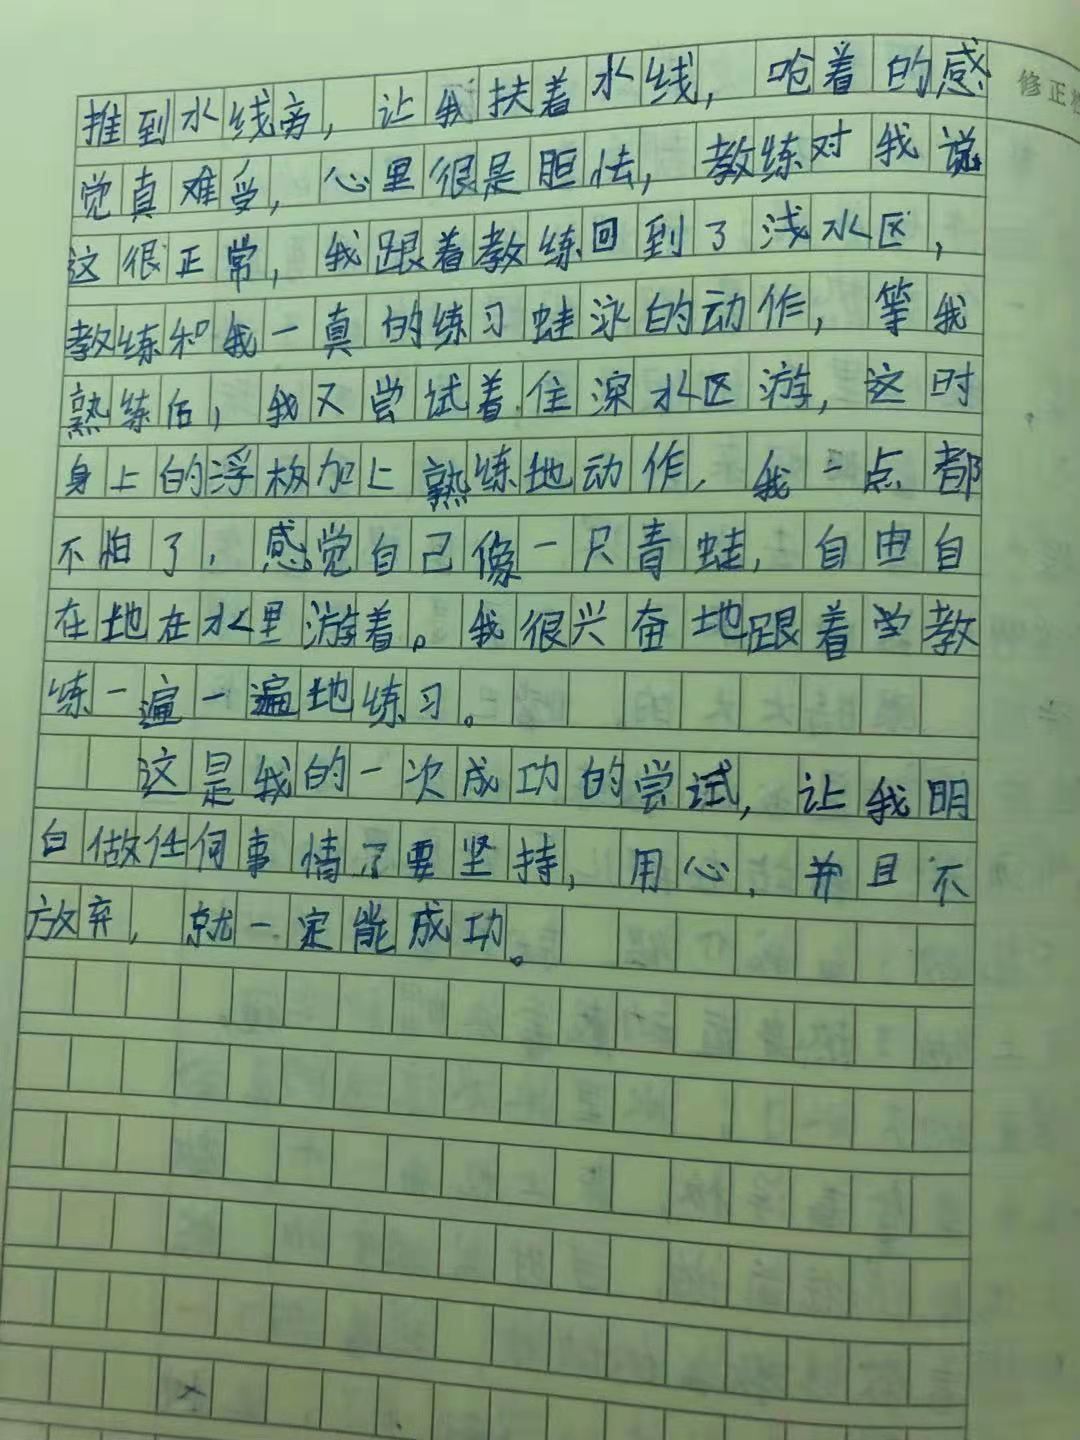 推到水线旁，让我扶着水线，呛着的感
觉真难受，心里很是胆怯，教练对我说
这很正常，我跟着教练回到了浅水区，
教练和我一真的练习蛙泳的动作，等我
熟练后，我又尝试着住深水区游，这时
身上的浮板加上熟练地动作，我一点都
不怕了，感觉自己像一只青蛙，自由自
在地在水里游着。我很兴奋地跟着学教
练一遍一遍地练习。
这是我的一次成功的尝试，让我明
白做任何事情了要坚持，用心，并且不
放弃，就一定能成功。
修正